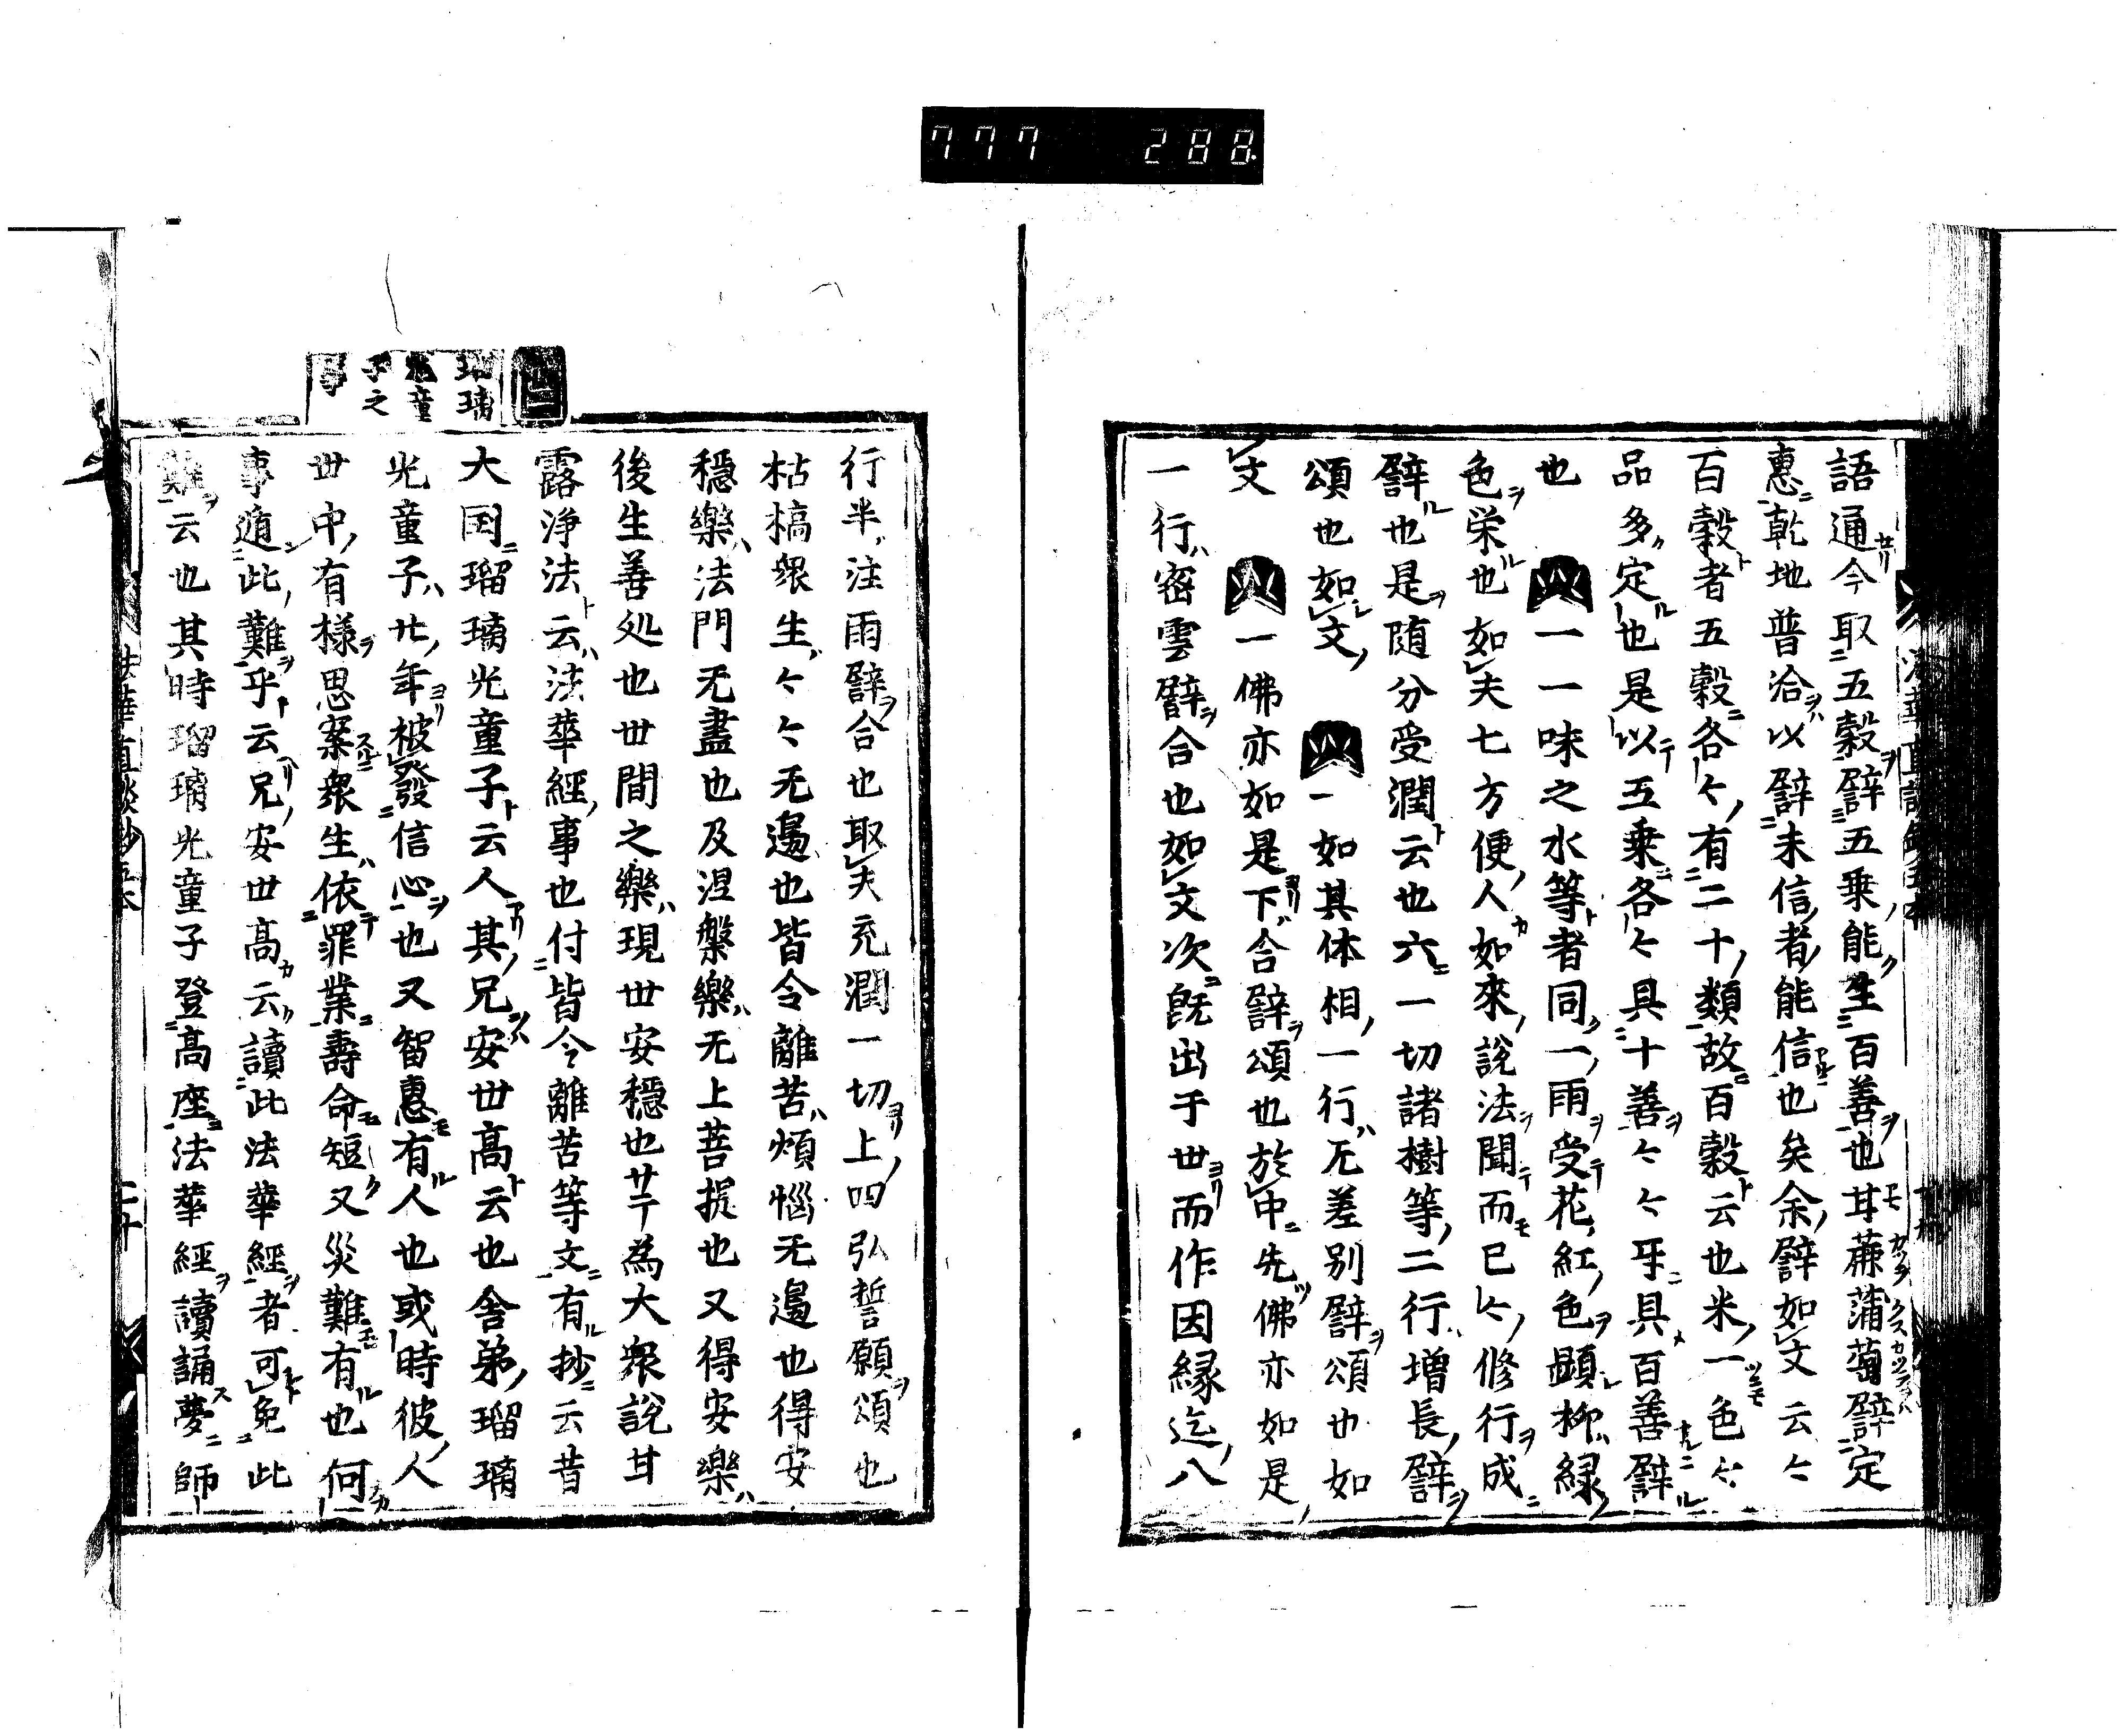 777 288
語通今取五穀譬五乗能生百善也甘蔗蒲萄譬定
惠乾地普洽以譬未信者能信也矣余譬如文云々
百穀者五穀各々有二十類故百穀云也米一色々
品多定也是以五乗各々具十善々々互具百善譬
也 一一味之水等者同一雨受花紅色顕柳緑
色栄也如夫七方便人如來說法聞而已々修行成
譬也是随分受潤云也六一切諸樹等二行増長譬
頌也如文 一如其体相一行无差別譬頌也如
文 一佛亦如是下合譬頌也於中先佛亦如是
一行密雲譬合也如文次既出于世而作因縁迄八
行半注雨譬合也取夫充潤一切上四弘誓願頌也
枯槁衆生々々无邊也皆令離苦煩惱无邊也得安
穩樂法門无盡也及涅槃樂无上菩提也又得安樂
後生善処也世間之樂現世安穩也𦬇為大衆說甘
露浄法云法華經事也付皆令離苦等文有抄云昔
瑠璃
光童
子之
事
大国瑠璃光童子云人其兄安世高云也舎弟瑠璃
光童子廿年被發信心也又智惠有人也或時彼人
世中有様思案衆生依罪業壽命短又災難有也何
事遁此難乎云兄安世高云讀此法華經者可免此
難云也其時瑠璃光童子登高座法華經讀誦夢師
法華直談鈔五本
二十